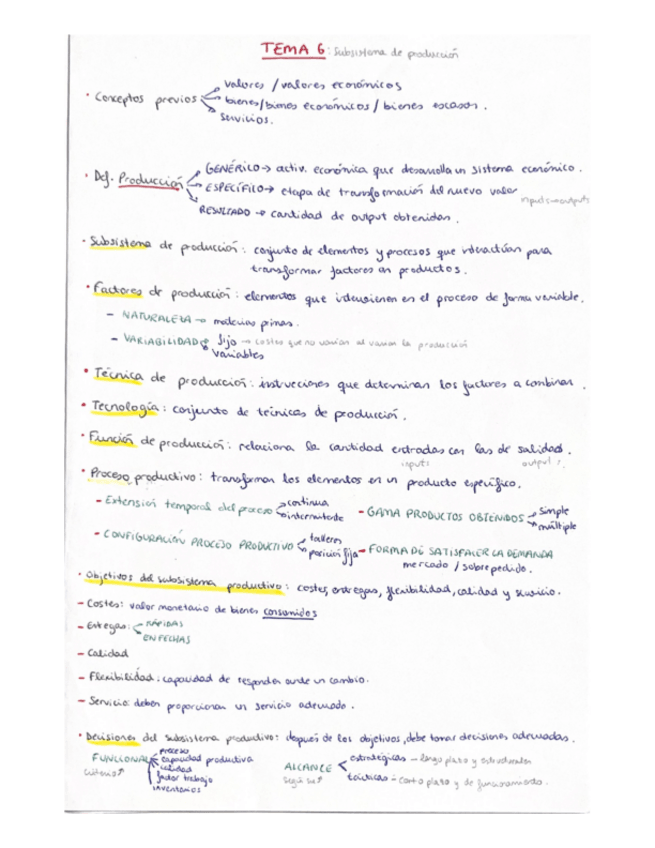 TEMA 6: Subsistema de producción
· Conceptos previos
valores / valores económicos
bienes/bienes económicos / bienes escasos.
Servicios.
· Def. Producción
GENÉRICO → activ. económica que desarrolla un sistema económico.
ESPECÍFICO → etapa de transformación del nuevo valor
inputs → outputs
RESULTADO → cantidad de output obtenidas.
· Subsistema de producción: conjunto de elementos y procesos que interactúan para
transformar factores en productos.
· Factores de producción: elementos que intervienen en el proceso de forma variable.
- NATURALEZA → materias primas.
- VARIABILIDAD
fijo → costes que no varían al variar la producción
variables
· Técnica de producción: instrucciones que determinan los factores a combinar.
· Tecnología: conjunto de técnicas de producción.
· Función de producción: relaciona la cantidad entradas con las de salidas.
inputs
outputs
· Proceso productivo: transforman los elementos en un producto específico.
- Extensión temporal del proceso
continua
intermitente
- GAMA PRODUCTOS OBTENIDOS
simple
múltiple
- CONFIGURACIÓN PROCESO PRODUCTIVO
talleres
posición fija
- FORMA DE SATISFACER LA DEMANDA
mercado / sobre pedido.
· Objetivos del subsistema productivo: costes, entregas, flexibilidad, calidad y servicio.
- Costes: valor monetario de bienes consumidos
- Entregas:
RÁPIDAS
EN FECHAS
- Calidad
- Flexibilidad: capacidad de responder ante un cambio.
- Servicio: deben proporcionar un servicio adecuado.
· Decisiones del subsistema productivo: después de los objetivos, debe tomar decisiones adecuadas.
FUNCIONAL
criterio ↑
proceso
capacidad productiva
calidad
factor trabajo
inventarios
ALCANCE
según su ↑
estratégicas - largo plazo y estructurales
tácticas - corto plazo y de funcionamiento.